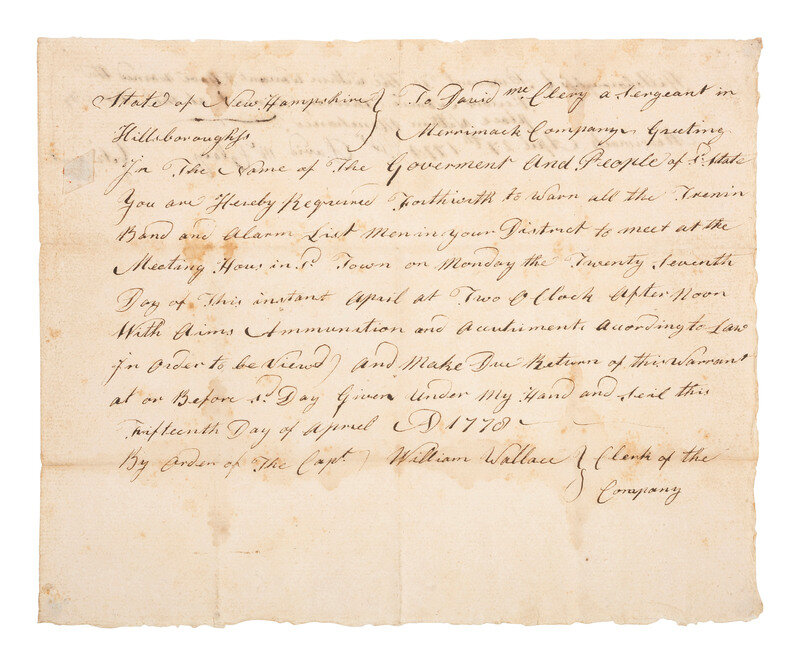 State of New Hampshire } To David mc Clery a Sergeant in
Hillsborough ss } Merrimack Company Greeting
In The Name of The Goverment And People of sd State
You are Hereby Required Forthwith to warn all the Trenin
Band and Alarm List Men in your District to meet at the
Meeting Hous in sd Town on Monday the Twenty Seventh
Day of This instant April at Two O Clock After Noon
With Aims Ammunition and Acutiments Acording to Law
In Order to be Viewd) And Make Due Return of this Warant
at or Before sd Day Given Under My Hand and Seil this
Fifteenth Day of Apreel AD 1778
By Order of The Capt) William Wallace } Clerk of the
Company